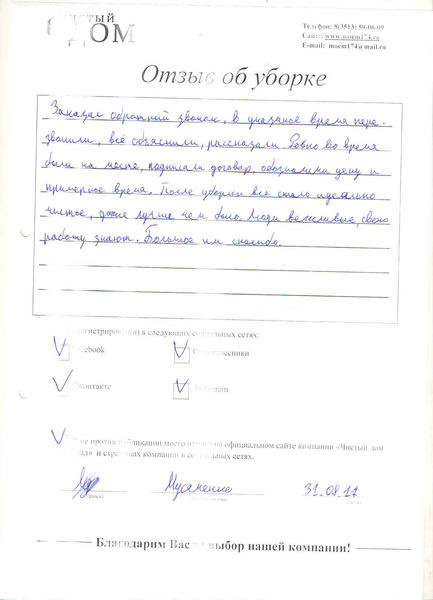 чистый
ДОМ
Телефон: 8(3513) 59-06-09
Сайт: www.moem174.ru
E-mail: moem174@mail.ru
Отзыв об уборке
Заказал обратный звонок, в указаное время пере-
звонили, всё объяснили, рассказали. Ровно во время
были на месте, подписали договор, обозначили цену и
примерное время. После уборки всё стало идеально
чистое, даже лучше чем было. Люди вежливые, свою
работу знают. Большое им спасибо.
в следующих социальных сетях:
не против публикации моего на официальном сайте компании «Чистый дом
и страницах компании в социальных сетях.
31.08.17
Благодарим Вас за выбор нашей компании!